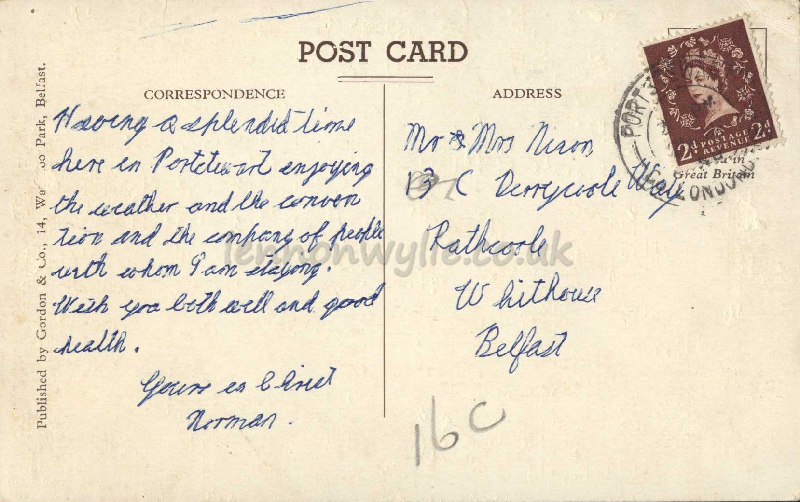 POST CARD
CORRESPONDENCE
ADDRESS
Having a splendid time
here in Portstewart enjoying
the weather and the conven
tion and the company of people
with whom I am staying.
Wish you both well and good
health.
Yours in Christ
Norman.
Mr & Mrs Nixon
13 C Derrycoole Way
Rathcoole
Whithouse
Belfast
16C
Published by Gordon & Co., 14, Park, Belfast.
2d POSTAGE REVENUE 2d
in
Great Britain
PORTST
CO. LONDOND
lennonwylie.co.uk